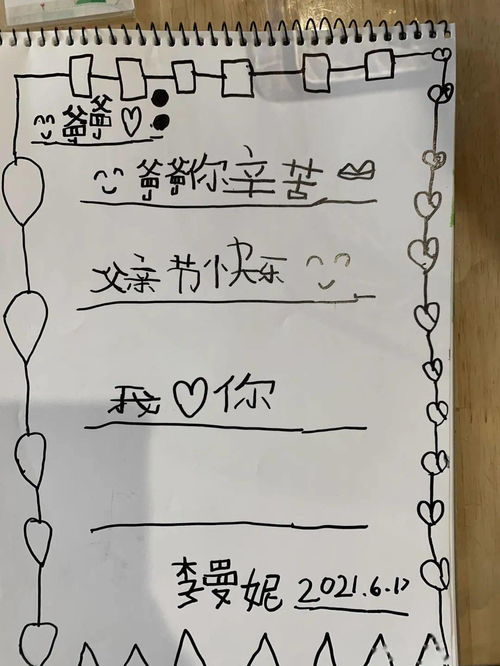 爸爸♡:
爸爸你辛苦
父亲节快乐
我♡你
李曼妮 2021.6.17